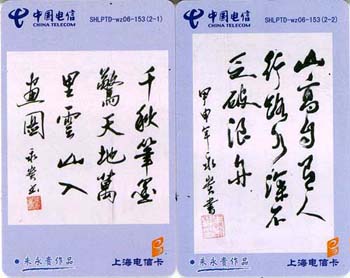 中国电信
SHLPTD-wz06-153(2-1)
千秋筆墨
驚天地萬
里雲山入
畫圖
永貴书
朱永貴作品
上海电信卡
中国电信
SHLPTD-wz06-153(2-2)
山高自有人
行路水深不
乏破浪舟
甲申年永貴書
朱永貴作品
上海电信卡